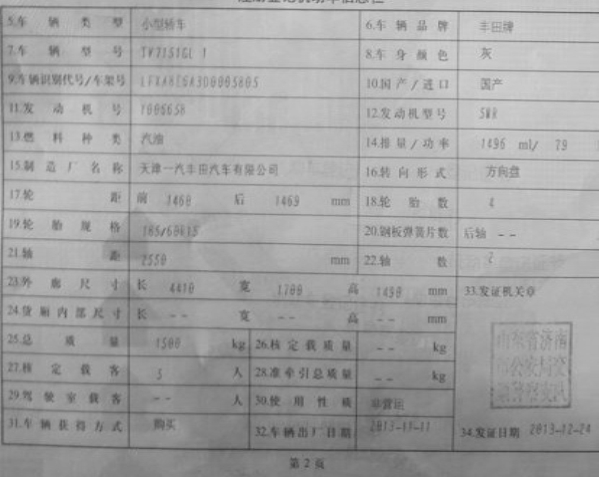 5.车辆类型 小型轿车 6.车辆品牌 丰田牌
7.车辆型号 TV7151GL 1 8.车身颜色 灰
9.车辆识别代号/车架号 10.国产/进口 国产
11.发动机号 Y006658 12.发动机型号 5WR
13.燃料种类 汽油 14.排量/功率 1496 ml/ 79
15.制造厂名称 天津一汽丰田汽车有限公司 16.转向形式 方向盘
17.轮距 前 1460 后 1469 mm 18.轮胎数 4
19.轮胎规格 185/60R15 20.钢板弹簧片数 后轴 --
21.轴距 2550 mm 22.轴数 2
23.外廓尺寸 长 4410 宽 1700 高 1490 mm 33.发证机关章
24.货厢内部尺寸 长 -- 宽 -- 高 -- mm
25.总质量 1500 kg 26.核定载质量 -- kg
27.核定载客 5 人 28.准牵引总质量 -- kg
29.驾驶室载客 -- 人 30.使用性质 非营运
31.车辆获得方式 购买 32.车辆出厂日期 2013-11-11 34.发证日期 2013-12-24
第2页